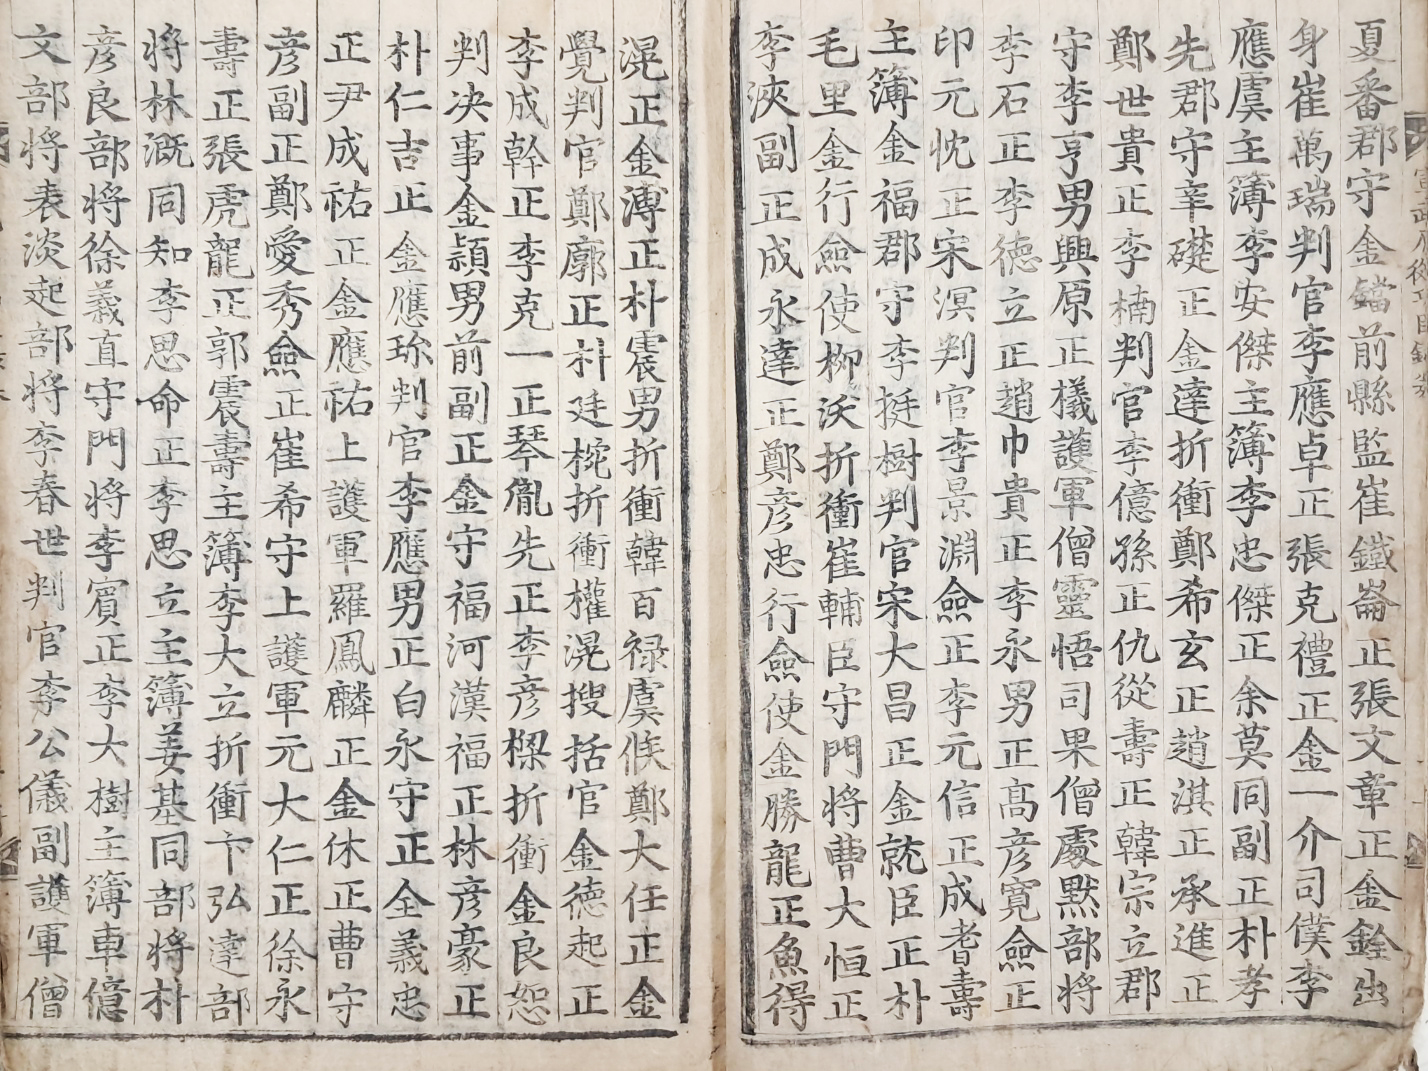 夏番郡守金鐺前縣監崔鐵崙正張文章正金銓出
身崔萬瑞判官李應卓正張克禮正金一介司僕李
應虞主簿李安傑主簿李忠傑正余莫同副正朴孝
先郡守辛礎正金達折衝鄭希玄正趙淇正承進正
鄭世貴正李楠判官李億孫正仇從壽正韓宗立郡
守李亨男興原正檥護軍僧靈悟司果僧處默部将
李石正李德立正趙巾貴正李永男正髙彦寬僉正
印元忱正宋溟判官李景淵僉正李元信正成耆壽
主簿金福郡守李挺樹判官宋大昌正金就臣正朴
毛里金行僉使栁沃折衝崔輔臣守門将曹大恒正
李浹副正成永達正鄭彦忠行僉使金勝龍正魚得
滉正金溥正朴震男折衝韓百禄虞候鄭大任正金
覺判官鄭廓正朴廷椀折衝權滉搜括官金德起正
李成幹正李克一正琴胤先正李彦樑折衝金良恕
判决事金潁男前副正金守福河漢福正林彦豪正
朴仁吉正金應珎判官李應男正白永守正全義忠
正尹成祐正金應祐上護軍羅鳳麟正金休正曹守
彦副正鄭愛秀僉正崔希守上護軍元大仁正徐永
壽正張虎龍正郭震壽主簿李大立折衝卞弘達部
将林溉同知李思命正李思立主簿姜基同部将朴
彦良部将徐義直守門将李賓正李大樹主簿車億
文部将表淡起部将李春世判官李公儀副護軍僧